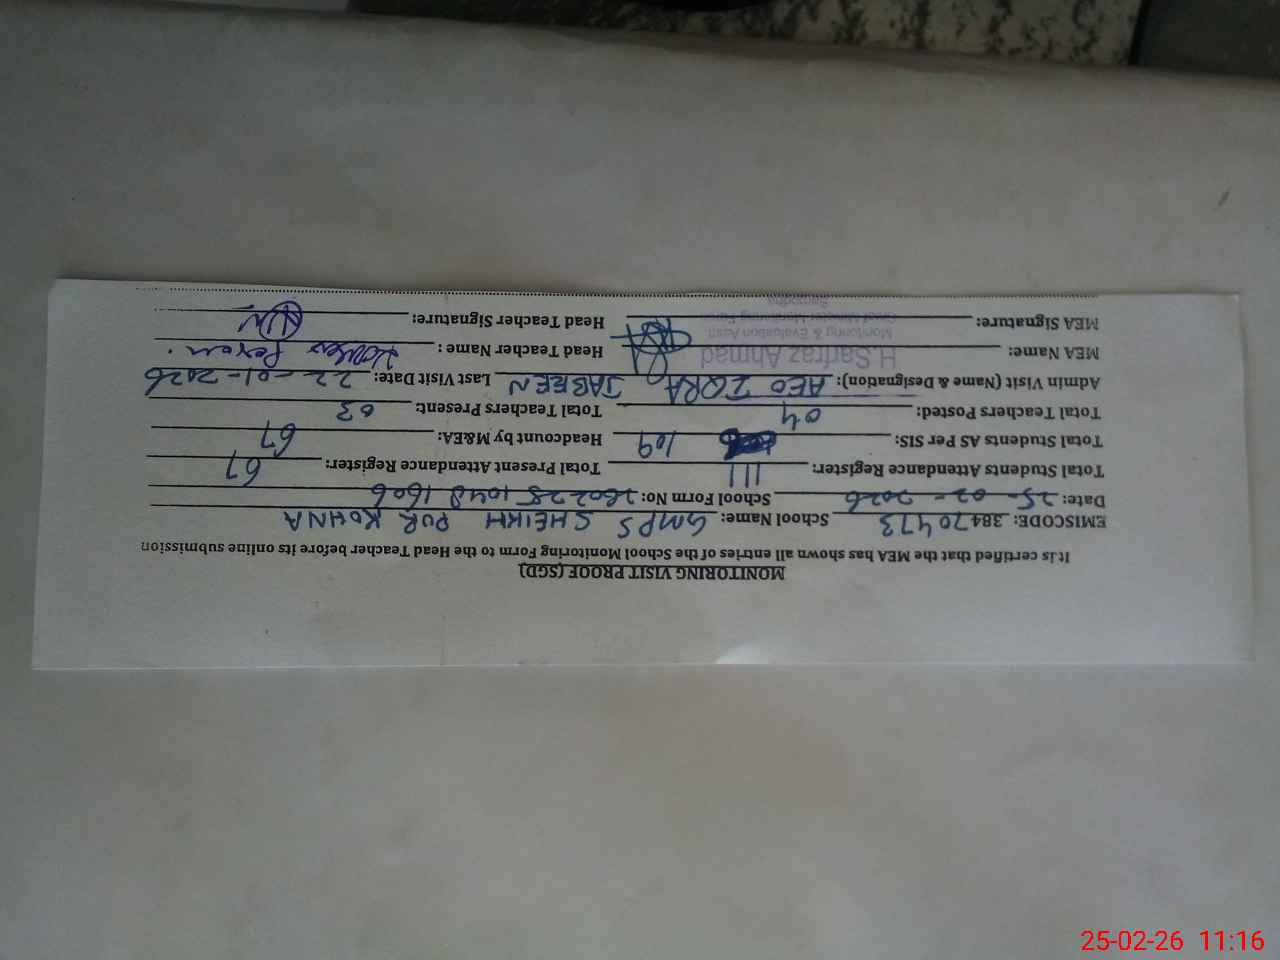 MONITORING VISIT PROOF (SGD)
It is certified that the MEA has shown all entries of the School Monitoring Form to the Head Teacher before its online submission
EMISCODE: 38470473 School Name: GMPS SHEIKH PUR KOHNA
Date: 25-02-2026 School Form No: 260225 1048 1606
Total Students Attendance Register: 111 Total Present Attendance Register: 67
Total Students AS Per SIS: 109 Headcount by M&EA: 67
Total Teachers Posted: 04 Total Teachers Present: 03
Admin Visit (Name & Designation): AEO IQRA JABEEN Last Visit Date: 22-01-2026
MEA Name: H.Sarfraz Ahmad Head Teacher Name:
Monitoring & Evaluation Asstt
MEA Signature: Head Teacher Signature:
Chief Minister Monitoring Force
Sargodha
25-02-26 11:16